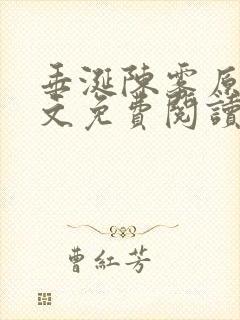 垂涎陳雾原
文免費閱讀
曹紅芳